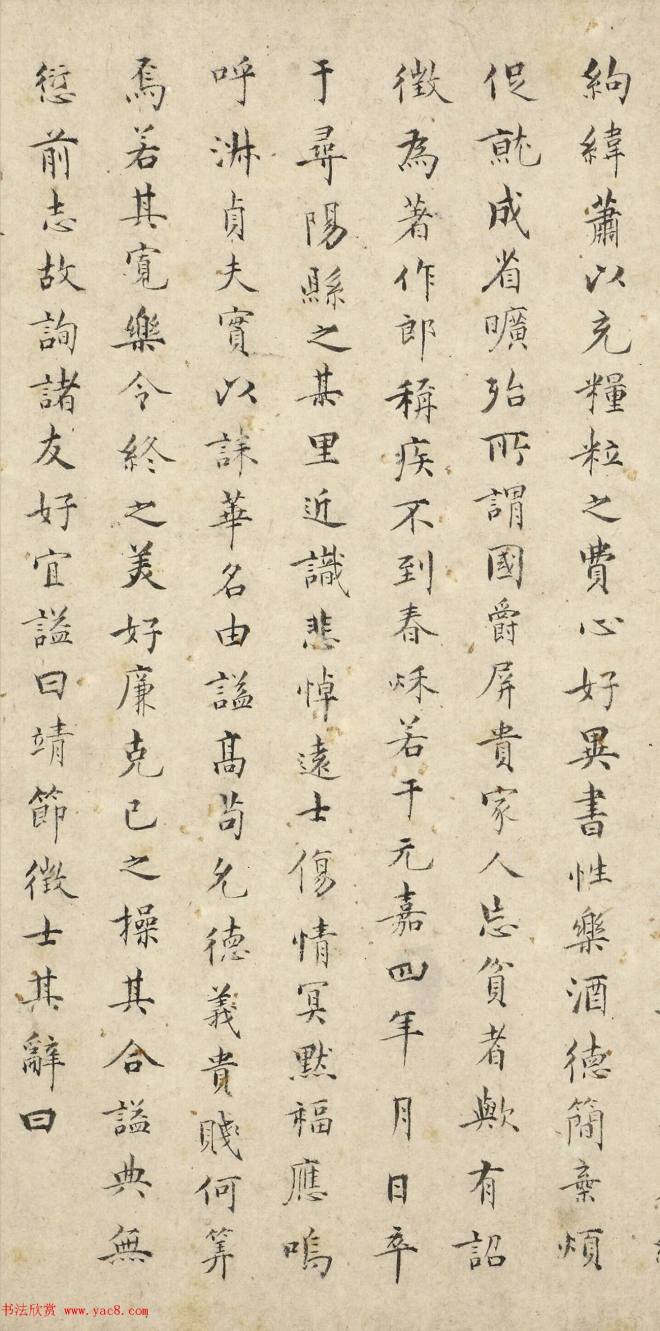 絇緯蕭以充糧粒之費心好異書性樂酒徳簡棄煩
促就成省曠殆所謂國爵屏貴家人忘貧者歟有詔
徴為著作郎稱疾不到春秋若干元嘉四年月日卒
于尋陽縣之某里近識悲悼遠士傷情冥默福應嗚
呼淋貞夫實以誄華名由謚髙茍允徳義貴賤何筭
焉若其寬樂令終之美好廉克己之操其合謚典無
愆前志故詢諸友好宜謚曰靖節徴士其辭曰
书法欣赏 www.yac8.com